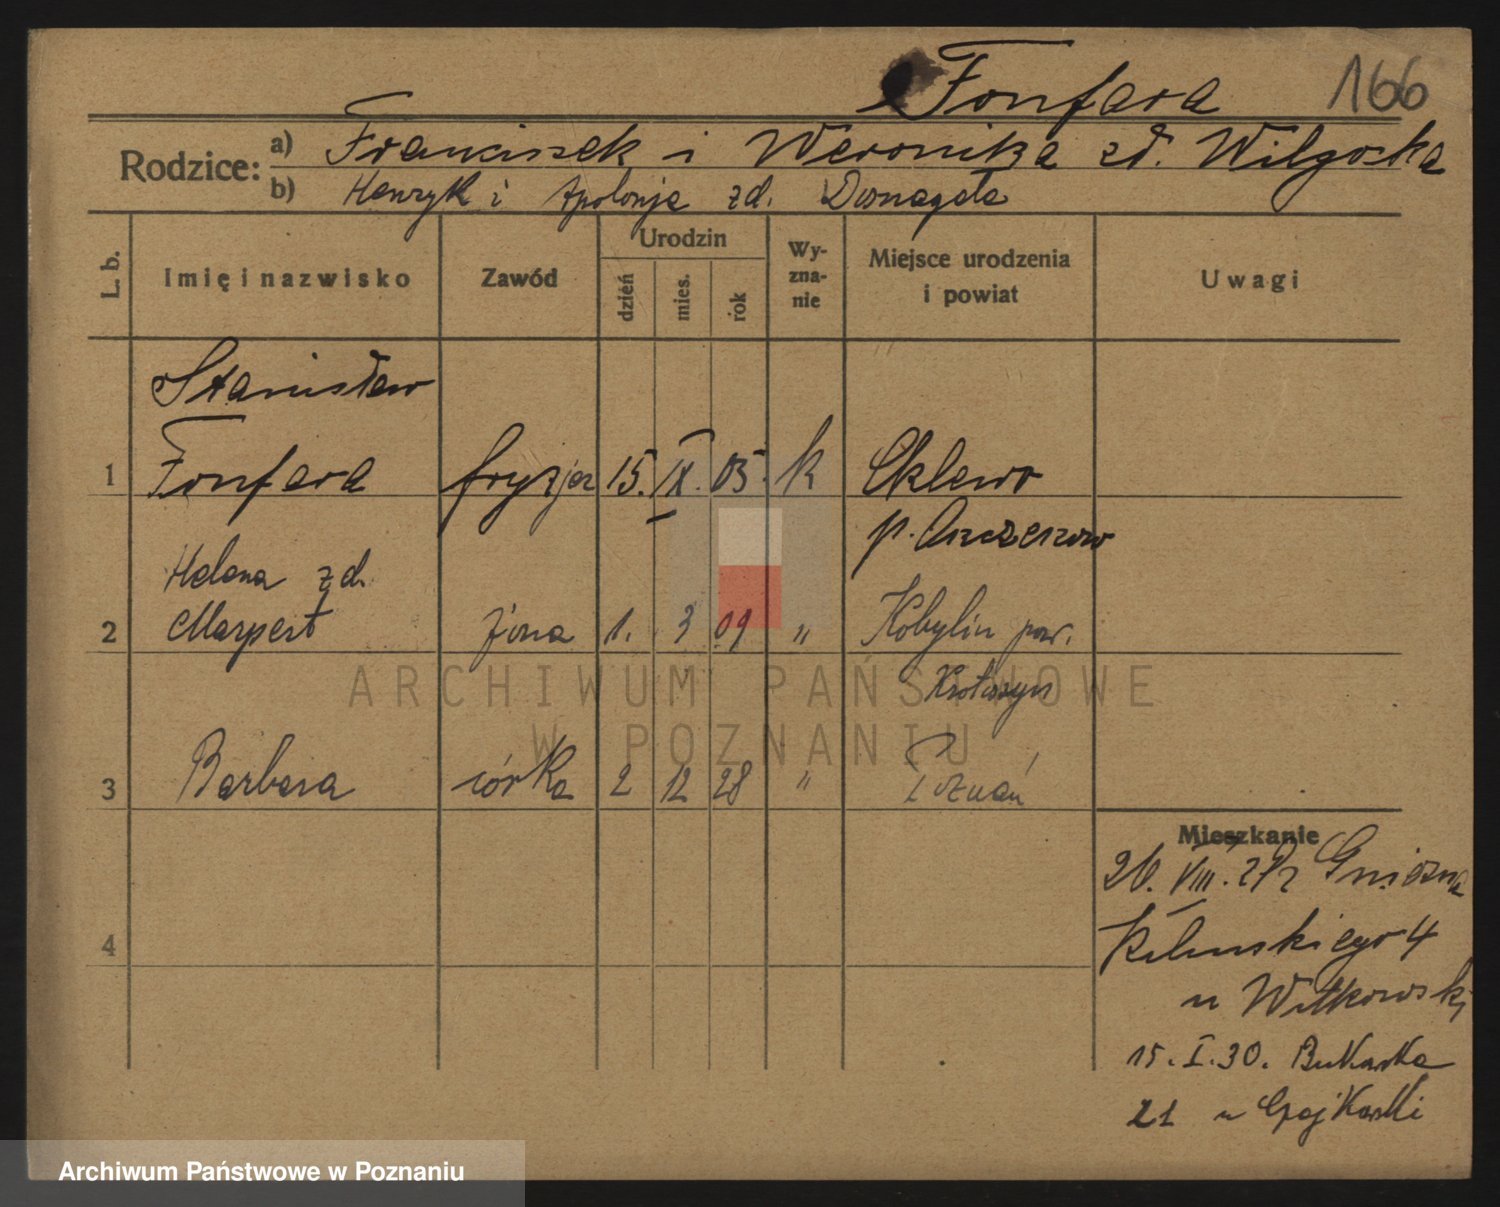 Fonfara 166
Rodzice: a) Franciszek i Weronika zd. Wilgocka
b) Henryk i Apolonja zd.
L. b. Imię i nazwisko Zawód Urodzin dzień mies. rok Wy-zna-nie Miejsce urodzenia i powiat Uwagi
Stanisław
1 Fonfara fryzjer 15. IX. 05. k
p.
Helena zd.
2 Marpert żona 1. 3 09 „ Kobylin pow.
Krotoszyn
3 Barbara córka 2 12 28 „ Poznań
Mieszkanie
20. VIII. Gniezna
4 Kilinskiego 4
u Witkowskiej
15. I. 30. Bukowska
21 u
ARCHIWUM PAŃSTWOWE
W POZNANIU
Archiwum Państwowe w Poznaniu